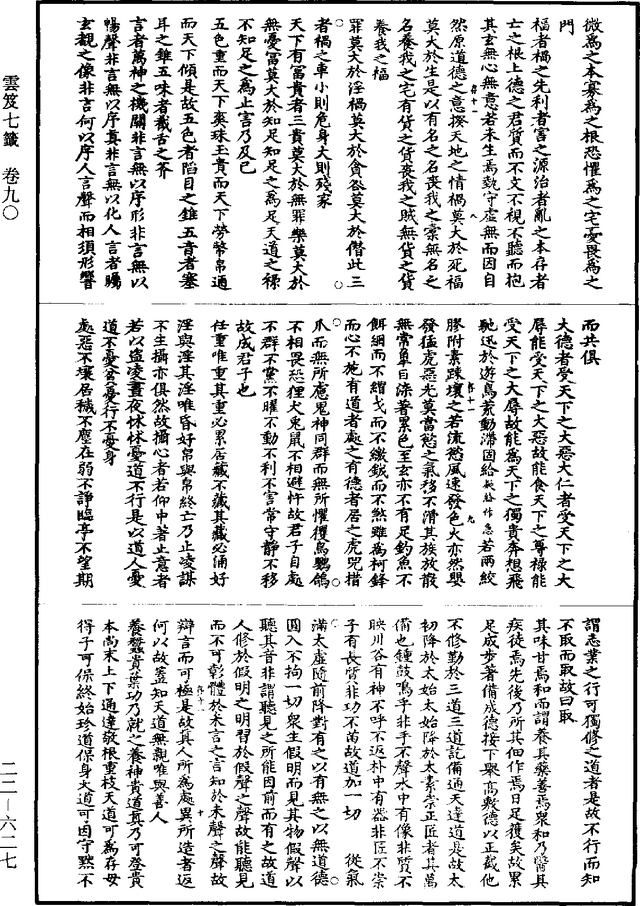 微為之本寡為之根恐懼為之宅憂畏為之
門
福者禍之先利者害之源治者亂之本存者
亡之根上德之君質而不文不視不聽而抱
其玄無心無意若未生焉執守虛無而因自
然原道德之意揆天地之情禍莫大於死福
莫大於生是以有名之名喪我之橐無名之
名養我之宅有貨之貨喪我之賊無貨之貨
養我之福
罪莫大於淫禍莫大於貪咎莫大於僭此三
者禍之車小則危身大則殘家
天下有富貴者三貴莫大於無罪樂莫大於
無憂富莫大於知足知足之為足天道之祿
不知足之為止害乃及已
五色重而天下爽珠玉貴而天下勞幣帛通
而天下傾是故五色者陷目之錐五音者塞
耳之錐五味者截舌之斧
言者萬神之機關非言無以序形非言無以
暢聲非言無以序真非言無以化人言者暢
玄觀之像非言何以序人言聲而相須形響
雲笈七籤 卷九〇
而共俱
大德者受天下之大惡大仁者受天下之大
辱能受天下之大惡故能食天下之尊祿能
受天下之大辱故能為天下之獨貴奔想飛
馳迅於遊鳥荒動滯固給 急若兩絞
膠附素踈壞之若流愁風速發色火亦然嬰
發猛虎惡光莫當愁之氣移不滑其族放散
無常阜白染著累色至玄亦不有足釣魚不
餌網而不繒戈而不繳鉞而不煞雖為柯鋒
而心不施有道者處之有德者居之虎兕措
爪而無所慮鬼神同群而無所懼玃鳥鸚鴿
不相畏恐狸犬兎鼠不相避忤故君子自處
不群不黨不曜不動不利不害常守靜不移
故成君子也
任重唯重其重必累居藏不藏其藏必俑好
淫與淫其淫唯昏好帛與帛終亡乃止凌謀
不生攝亦俱然故攝心者若仰中著止意者
若以盜凌晝夜怵怵憂道不行是以道人憂
道不憂貧憂行不憂身
處惡不壞居穢不塵在弱不諍臨亭不望期
謂志業之行可獨修之道者是故不行而知
不取而取故曰取
其味甘焉和而謂養其藥善焉眾和乃醫其
疾徒焉先後乃所其佃作焉日足穫矣故累
足成步著備成德接下舉高敷德以正截他
不修勤於三道三道託備通天達道是故太
初降於太始太始降於太素崇正匠者其萬
備也鍾鼓鳴乎非手不聲水中有像非質不
映川谷有神不呼不返朴中有器非匠不崇
子有長質非功不苗故道加一切 從氣
滿太虛隨前降對有之以有無之以無道德
圓入不拘一切眾生假明而見其物假聲以
聽其音非謂聽見之所能因前而有之故道
人修於假明之明習於假聲之聲故能聽見
而不可彰體於未言之言知於未聲之聲故
辯言而可極是故真人所為處異所造者返
何以故蓋知天道無親唯與善人
養蠶貴葉功乃就之養神貴道真乃可登貴
本尚末上下通達敬根重枝天道可為存母
得子可保終始珍道保身大道可因守默不
二二—六二七